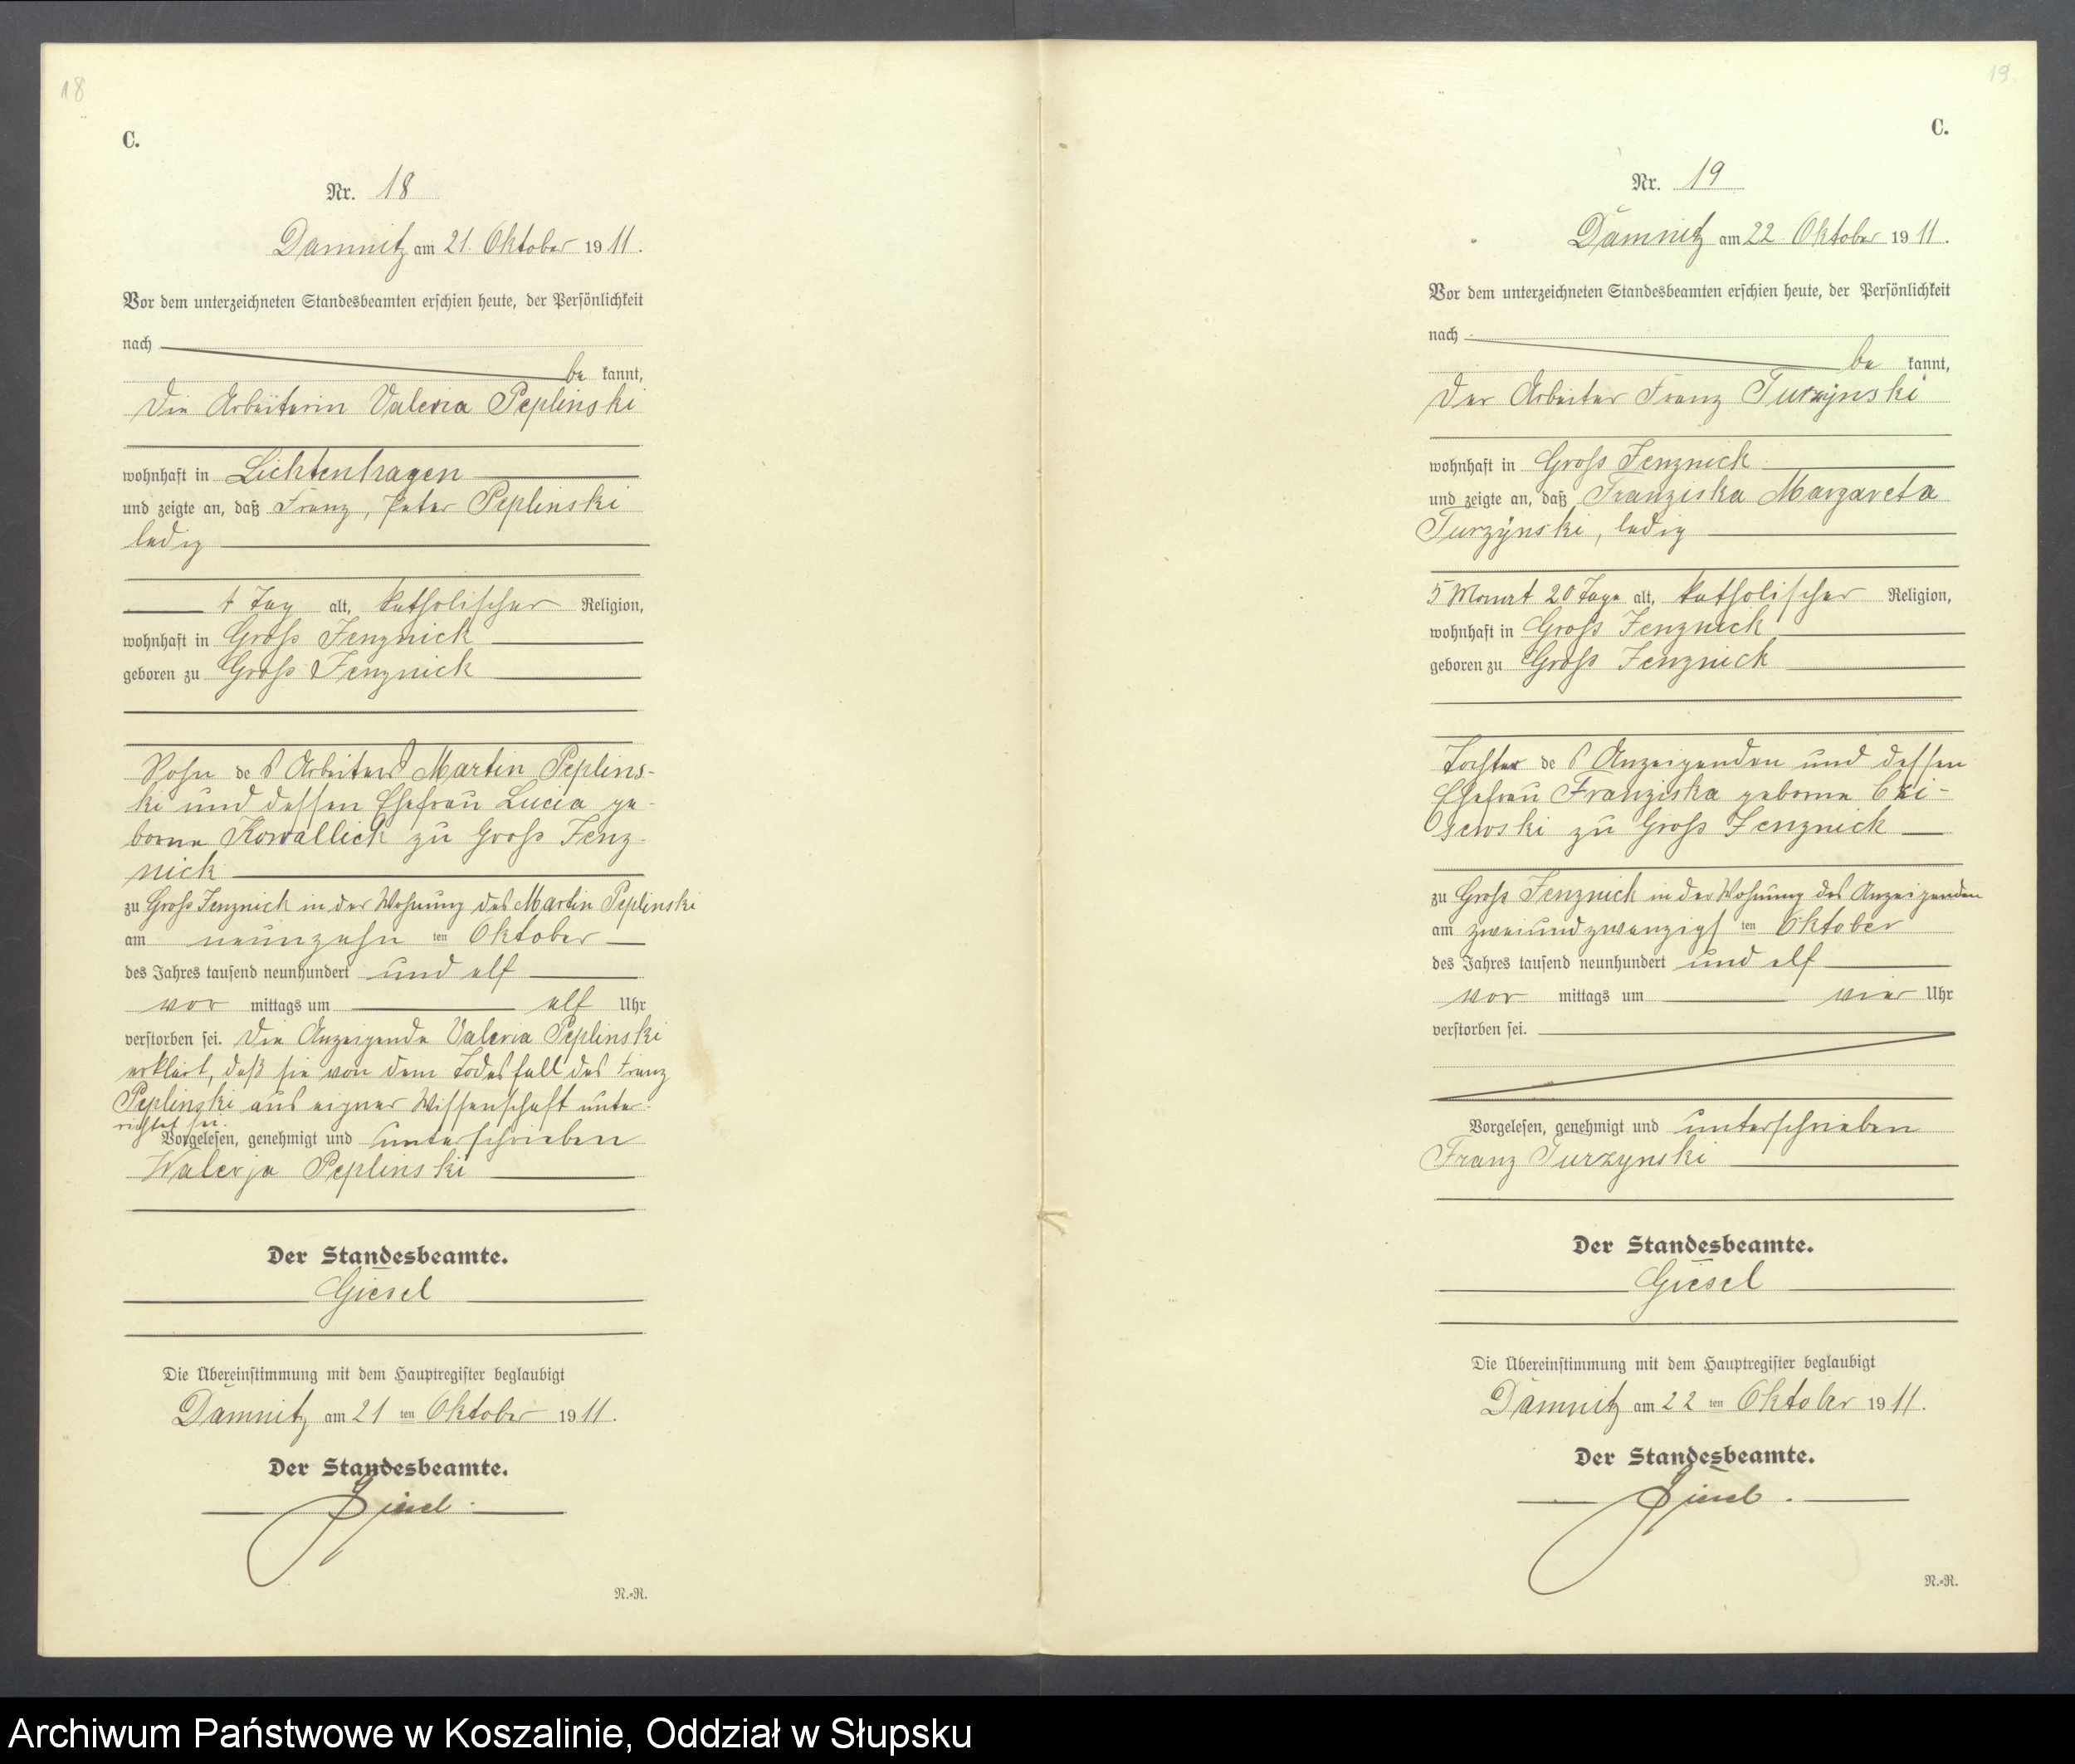 18
C.
Nr. 18
Damnitz am 21. Oktober 1911.
Vor dem unterzeichneten Standesbeamten erschien heute, der Persönlichkeit
nach
be kannt,
die Arbeiterin Valeria Peplinski
wohnhaft in Lichtenhagen
und zeigte an, daß Franz, Peter Peplinski
ledig
1 Tag alt, katholischer Religion,
wohnhaft in Gross Jenznick
geboren zu Gross Jenznick
Sohn des Arbeiters Martin Peplins-
ki und dessen Ehefrau Lucia ge-
borne Kowallick zu Gross Jenz-
nick
zu Gross Jenznick in der Wohnung des Martin Peplinski
am neunzehn ten Oktober
des Jahres tausend neunhundert und elf
vor mittags um elf Uhr
verstorben sei. Die Anzeigende Valeria Peplinski
erklärt, daß sie von dem Todesfall des Franz
Peplinski aus eigner Wissenschaft unter-
richtet sei.
Vorgelesen, genehmigt und unterschrieben
Walerja Peplinski
Der Standesbeamte.
Giesel
Die Übereinstimmung mit dem Hauptregister beglaubigt
Damnitz, am 21 ten Oktober 1911.
Der Standesbeamte.
Giesel.
N.-R.
19.
C.
Nr. 19
Damnitz am 22. Oktober 1911.
Vor dem unterzeichneten Standesbeamten erschien heute, der Persönlichkeit
nach
be kannt,
der Arbeiter Franz Turzynski
wohnhaft in Gross Jenznick
und zeigte an, daß Franziska Margareta
Turzÿnski, ledig
5 Monat 20 Tage alt, katholischer Religion,
wohnhaft in Gross Jenznick
geboren zu Gross Jenznick
Tochter des Anzeigenden und dessen
Ehefrau Franziska geborne
zu Gross Jenznick
zu Gross Jenznick in der Wohnung des Anzeigenden
am zweiundzwanzigs ten Oktober
des Jahres tausend neunhundert und elf
vor mittags um vier Uhr
verstorben sei.
Vorgelesen, genehmigt und unterschrieben
Franz Turzynski
Der Standesbeamte.
Giesel
Die Übereinstimmung mit dem Hauptregister beglaubigt
Damnitz am 22 ten Oktober 1911.
Der Standesbeamte.
Giesel.
N.-R.
Archiwum Państwowe w Koszalinie, Oddział w Słupsku